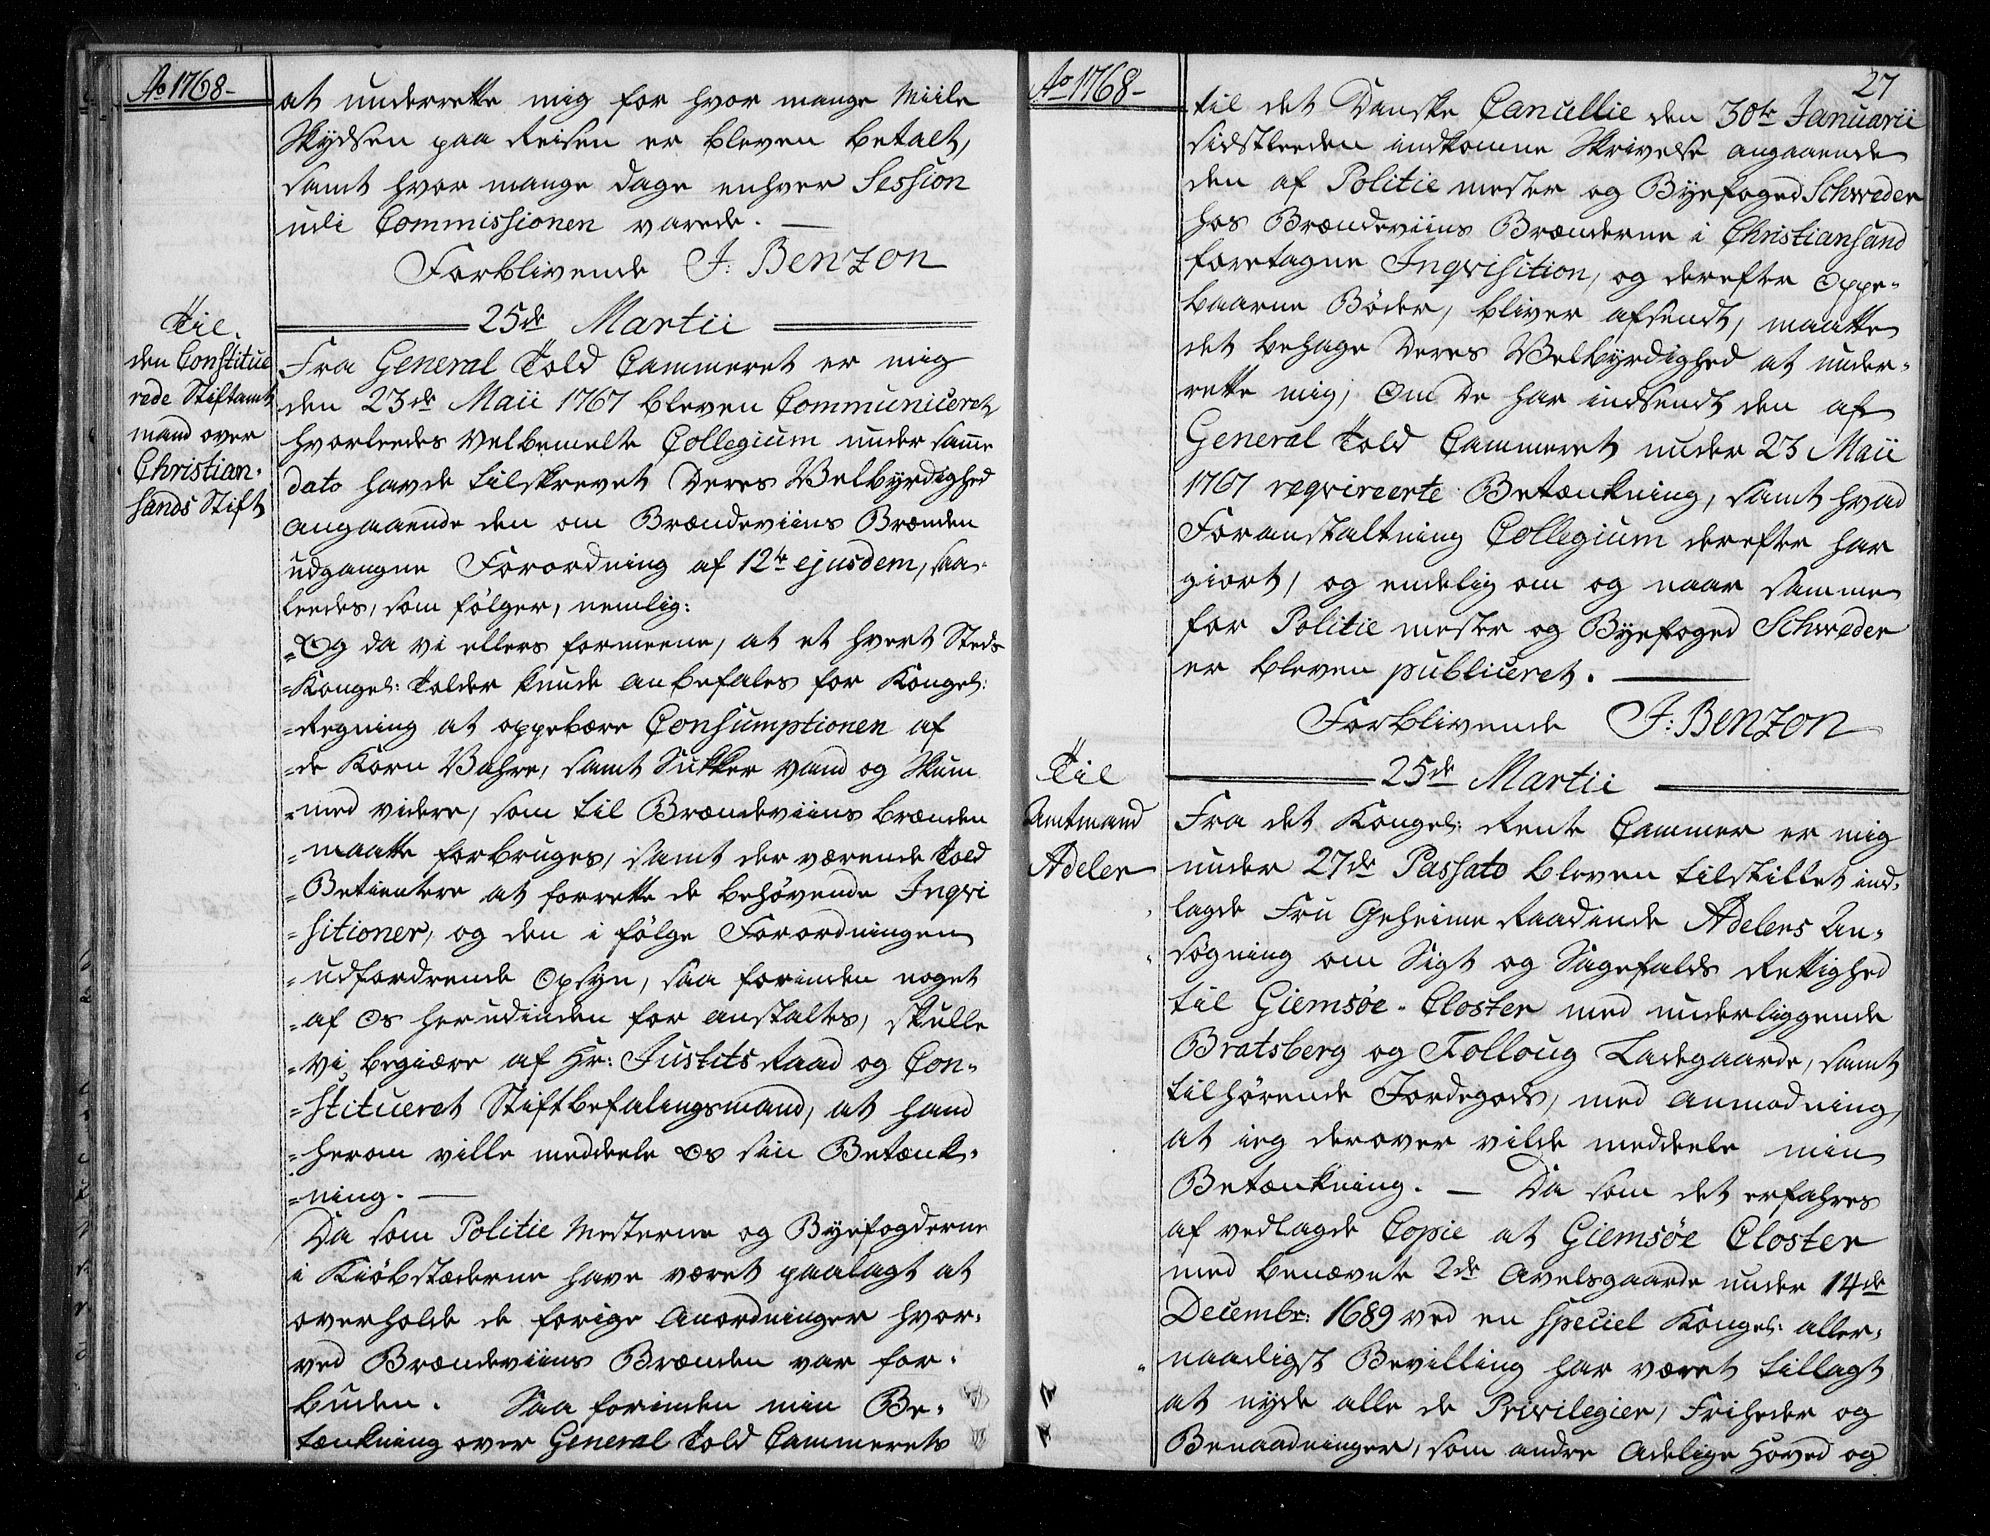 Ao 1768-
at underrette mig for hvor mange Miile
Skydsen paa Reisen er bleven betalt,
samt hvor mange Dage enhver Session
udi Commissionen varede. —
Forblivende J: Benzon
25de Martii
Til
den Constitue
rede Stiftamt
mand over
Christian-
sands Stift
Fra General Told Cammeret er mig
den 23de Maii 1767 bleven Communiceret
hvorleedes Velbemelte Collegium under samme
dato havde tilskrevet Deres Velbyrdighed
angaaende den om Brændeviins Brænden
udgangne Forordning af 12te ejusdem, saa-
leedes, som følger, nemlig:
=Og da vi ellers formeene, at et hvert Steds
=Kongel: Tolder kunde anbefales for Kongel:
=Regning at oppebære Consumptionen af
=de Korn Vahre, samt Sukker Vand og Skum
=med videre, som til Brændeviins brænden
=maatte forbruges, samt der værende Told
=Betientere at forrette de behøvende Inqvi
=sitioner, og den i følge Forordningen
=udfordrende Opsyn, saa forinden noget
=af Os herudinden for anstaltes, skulle
=vi begiære af Hr: Justits Raad og Con-
=stitueret Stiftbefalingsmand, at hand
=herom ville meddeele Os sin Betænk-
=ning. —
Da som Politie Mesterne og Byefogderne
i Kiøbstæderne have været paalagt at
overholde de forige Anordninger hvor-
ved Brændeviins Brænden var for-
buden. Saa forinden min Be-
tænkning over General Told Cammerets
Ao 1768-
27
til det Danske Cancellie den 30te Januarii
sidstleeden indkomne Skrivelse angaaende
den af Politie mester og Byefoged Schweder
hos Brændeviins Brænderne i Christiansand
foretagne Inqvisition, og derefter Oppe-
baarne Bøder, bliver afsendt, maatte
det behage Deres Velbyrdighed at under-
rette mig, Om De har indsendt den af
General Told Cammeret under 23 Maii
1767 reqvireerte Betænkning, samt hvad
Foranstaltning Collegium derefter har
giort, og endelig om og naar samme
for Politie mester og Byefoged Schweder
er bleven publiceret. —
Forblivende J: Benzon
25de Martii
Til
Amtmand
Adeler
Fra det Kongel: Rente Cammer er mig
under 27de Passato bleven tilstillet ind-
lagde Fru Geheime Raadinde Adelers An-
søgning om Sigt og Sagefalds Rettighed
til Giemsøe-Closter med underliggende
Bratsberg og Folloug Ladegaarde, samt
tilhørende Jordegods, med anmodning,
at ieg derover vilde meddeele min
Betænkning. — Da som det erfahres
af vedlagde Copie at Giemsøe Closter
med benævnte 2de Avelsgaarde under 14de
Decembr: 1689 ved en Speciel Kongel: aller-
naadigst Bevilling har været tillagt
at nyde alle de Privilegier, Friheder og
Benaadninger, som andre Adelige Hoved og